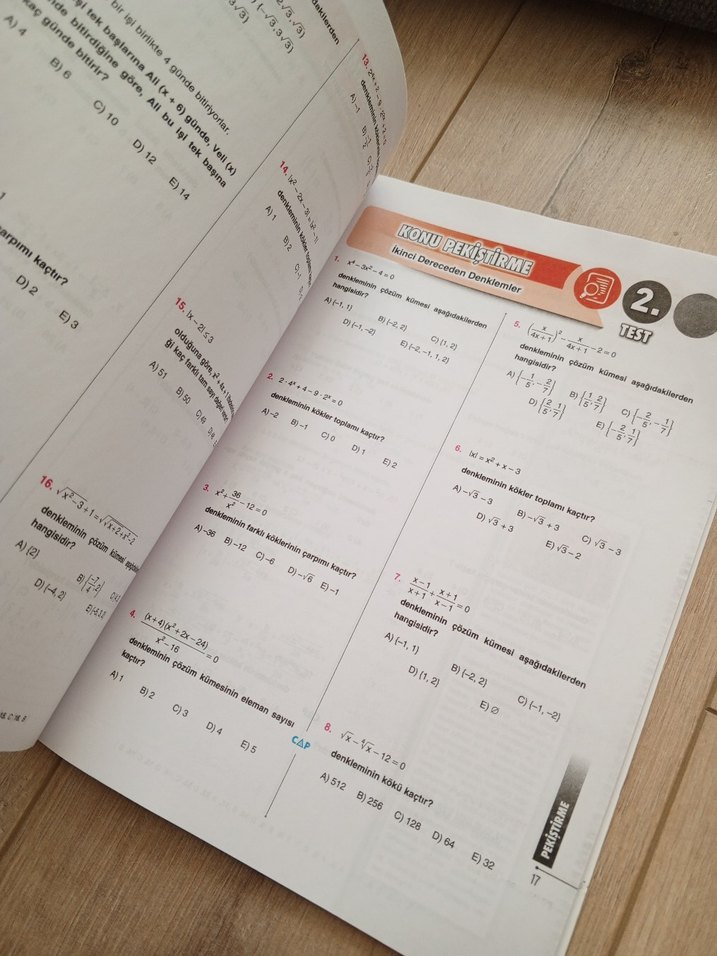 2√3, √3)
(−√3, 3√3)
3√3)
bir işi birlikte 4 günde bitiriyorlar.
işi tek başlarına Ali (x + 6) günde, Veli (x)
bitirdiğine göre, Ali bu işi tek başına
kaç günde bitirir?
A) 4
B) 6
C) 10
D) 12
E) 14
çarpımı kaçtır?
D) 2
E) 3
13.
A) −1
14. |x² − 2x − 3| = |x² − 1|
denkleminin kökler
A) 1
B) 2
15. |x − 2| ≤ 3
olduğuna göre,
ği kaç farklı tam sayı değeri
A) 51
B) 50
C) 49
16.
denkleminin çözüm kümesi
hangisidir?
A) {2}
D) {−4, 2}
KONU PEKİŞTİRME
İkinci Dereceden Denklemler
2.
TEST
1. x⁴ − 3x² − 4 = 0
denkleminin çözüm kümesi aşağıdakilerden
hangisidir?
A) {−1, 1}
B) {−2, 2}
C) {1, 2}
D) {−1, −2}
E) {−2, −1, 1, 2}
2. 2 · 4ˣ + 4 − 9 · 2ˣ = 0
denkleminin kökler toplamı kaçtır?
A) −2 B) −1 C) 0 D) 1 E) 2
3. x² + 36/x² − 12 = 0
denkleminin farklı köklerinin çarpımı kaçtır?
A) −36 B) −12 C) −6 D) −√6 E) −1
4. (x + 4)(x² + 2x − 24) / x² − 16 = 0
denkleminin çözüm kümesinin eleman sayısı
kaçtır?
A) 1
B) 2
C) 3
D) 4
E) 5
ÇAP
5. (x/4x + 1)² − x/4x + 1 − 2 = 0
denkleminin çözüm kümesi aşağıdakilerden
hangisidir?
A) {−1/5, −2/7}
B) {1/5, 2/7}
C) {−2/5, −1/7}
D) {2/5, 1/7}
E) {−2/5, 1/7}
6. |x| = x² + x − 3
denkleminin kökler toplamı kaçtır?
A) −√3 − 3
B) −√3 + 3
C) √3 − 3
D) √3 + 3
E) √3 − 2
7. x − 1/x + 1 + x + 1/x − 1 = 0
denkleminin çözüm kümesi aşağıdakilerden
hangisidir?
A) {−1, 1}
B) {−2, 2}
C) {−1, −2}
D) {1, 2}
E) ∅
8. √x − ⁴√x − 12 = 0
denkleminin kökü kaçtır?
A) 512 B) 256 C) 128 D) 64 E) 32
PEKİŞTİRME
17